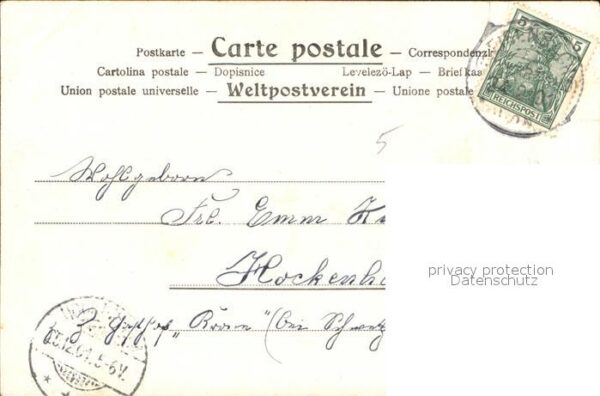 Postkarte — Carte postale — Correspondenz
Cartolina postale — Dopisnice Levelező-Lap — Briefkaa
Union postale universelle — Weltpostverein — Unione postale
5 5
REICHSPOST
5
Wohlgeboren
Frl. Emm
Hockenh
z. Gasthof „Krone" (bei Schwetz
privacy protection
Datenschutz